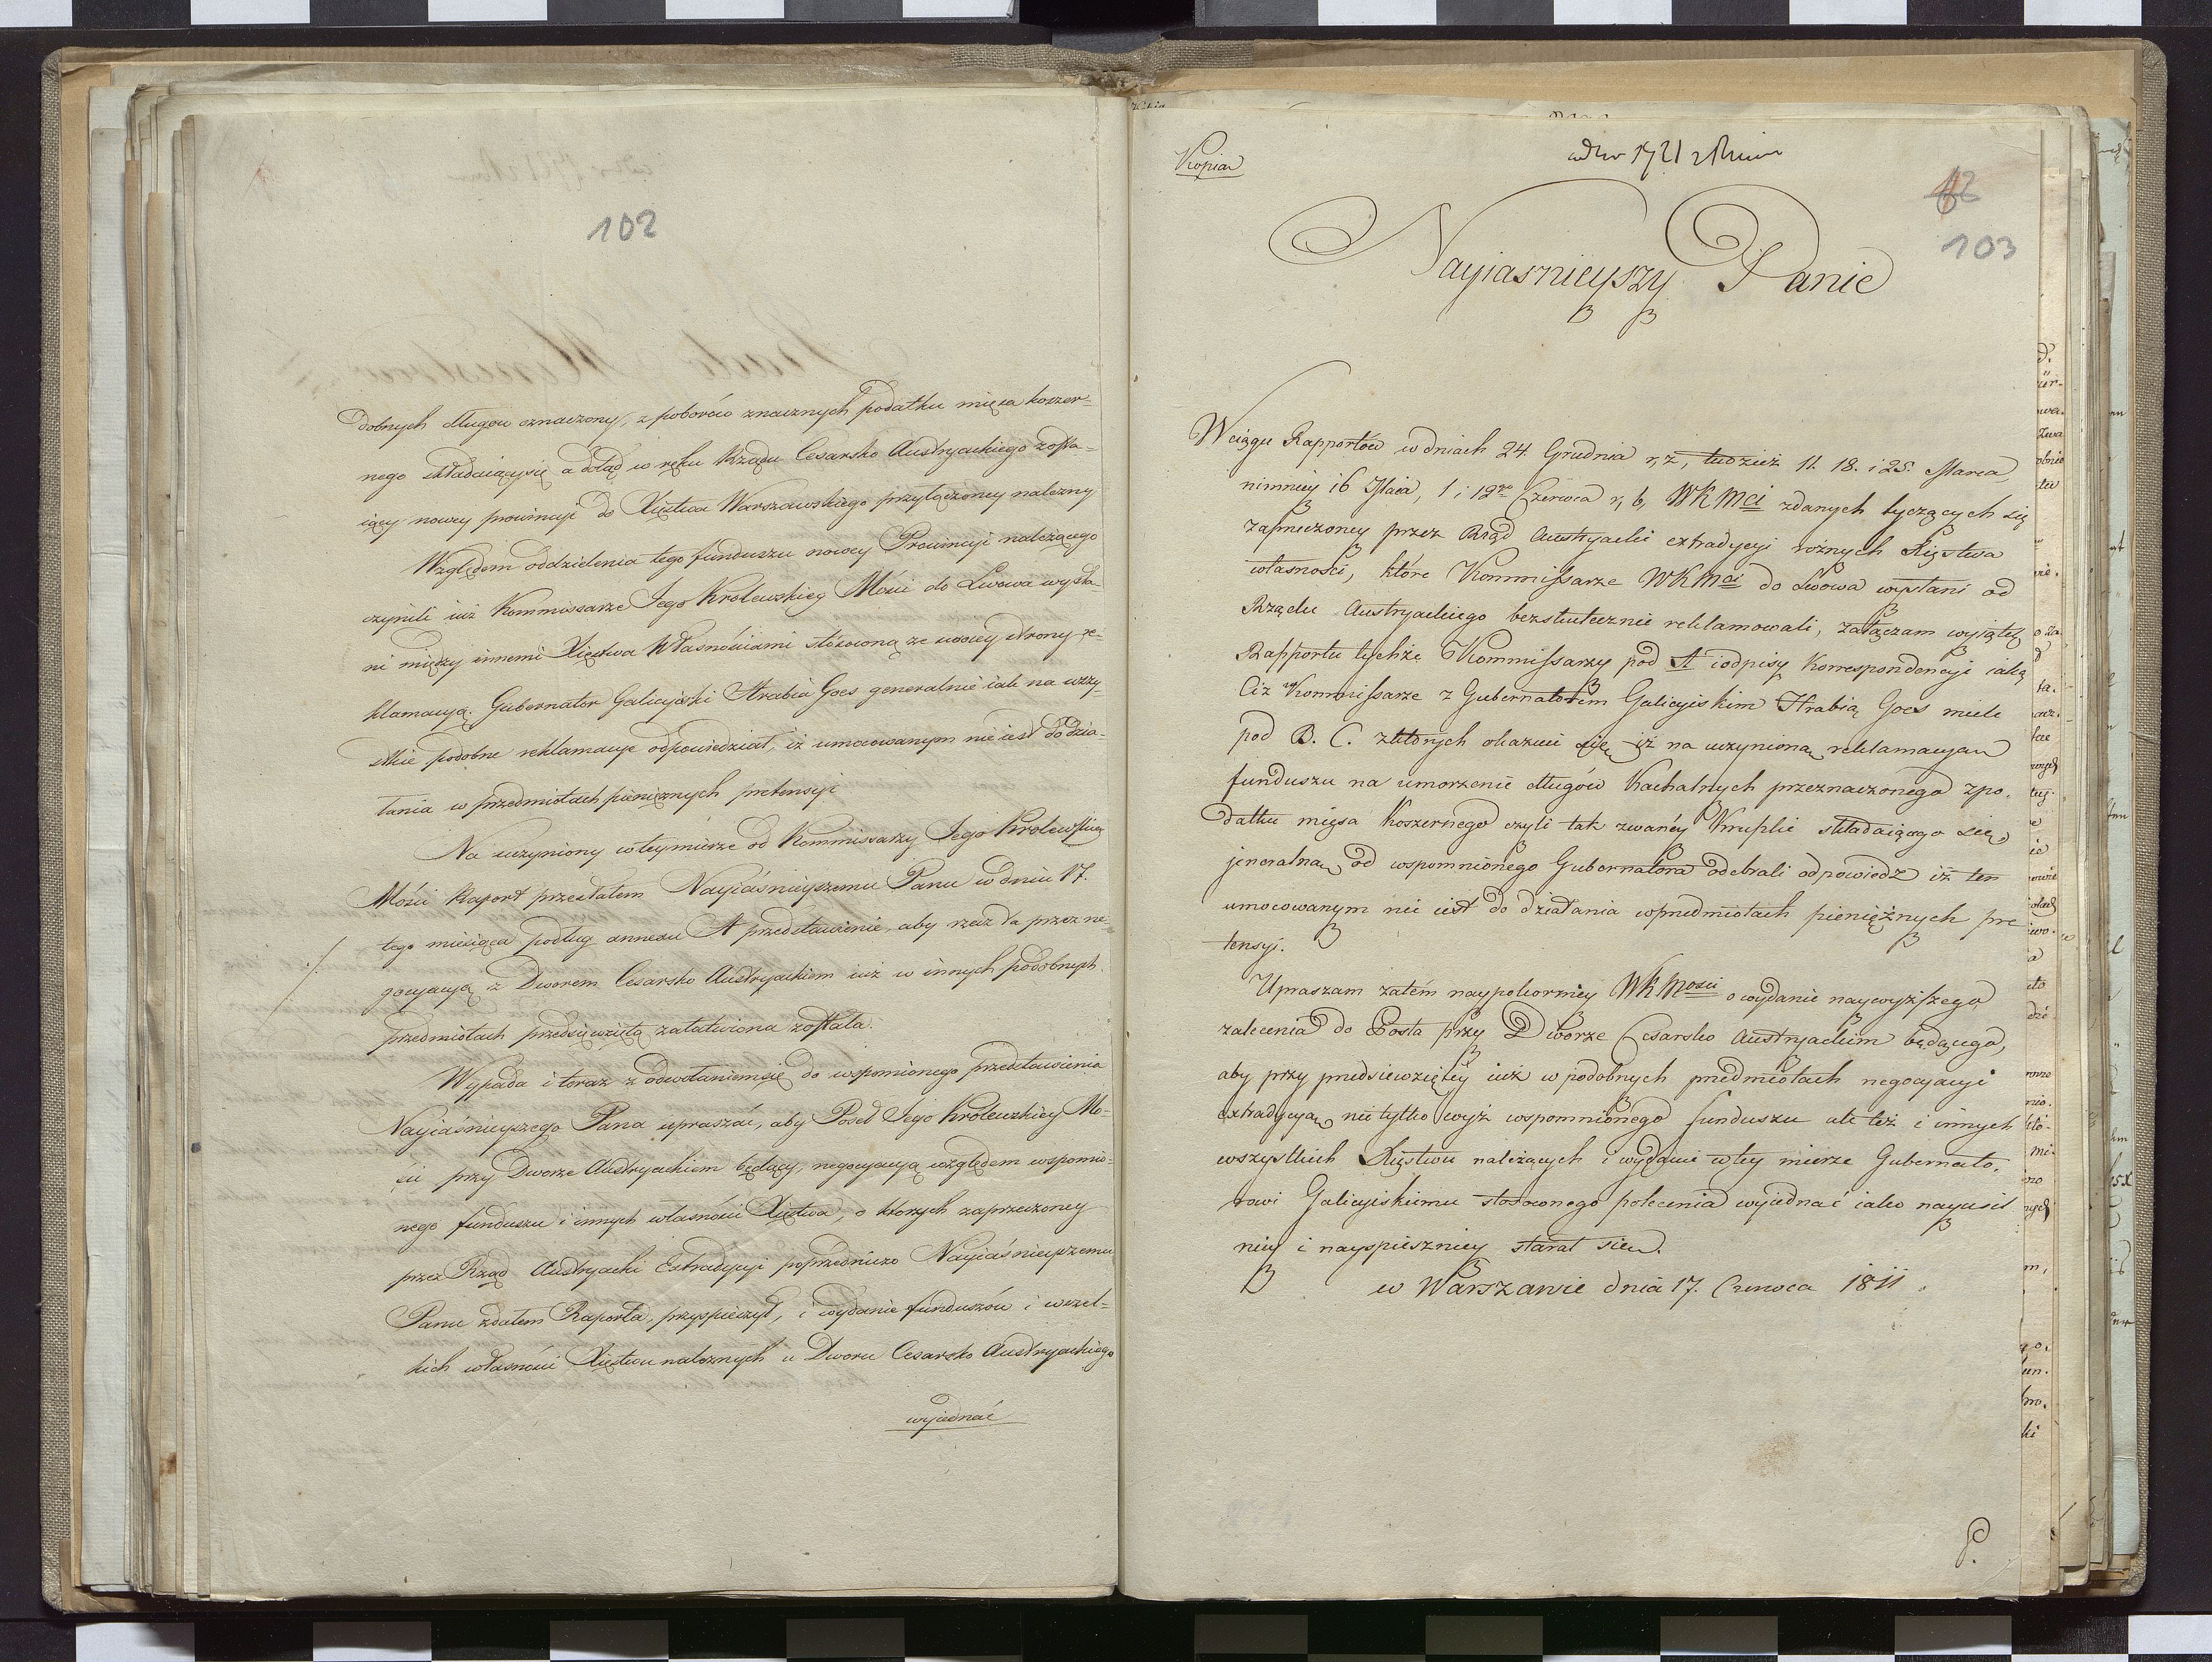 102
dobnych długow oznaczony, z poborów znacznych podatku mięsa koszer-
nego składaiącysię a dotąd w ręku Rządu Cesarsko Austryackiego zosta-
iący nowey prowincyi do Xięstwa Warszawskiego przyłączoney należny
Względem oddzielenia tego funduszu nowey Prowincyi należącego
czynili iuż Kommissarze Jego Krolewskiey Mosci do Lwowa wysła-
ni między innemi Xięstwa Własnościami stósowną ze swoiey strony re-
klamacyą. Gubernator Galicyiski Hrabia Goes generalnie iak na wszy-
stkie podobne reklamacye odpowiedział, iż umocowanym nie iest do dzia-
łania w przedmiotach pieniężnych pretensyi
Na uczyniony wteymierze od Kommissarzy Jego Krolewskiey
Mości Raport przesłałem Nayiaśnieyszemu Panu w dniu 17.
tego miesiąca podług annexu A przedstawienie, aby rzecz ta przez ne
gocyacyą z Dworem Cesarsko Austryackiem iuż w innych podobnych
przedmiotach przedsięwziętą załatwiona została.
Wypada i teraz z odwołaniemsię do wspomionego przedstawienia
Nayiaśnieyszego Pana upraszać, aby Poseł Jego Krolewskiey Mo-
ści przy Dworze Austryackiem będący, negocyacyą względem wspomio-
nego funduszu i innych własności Xięstwa, o ktorych zaprzeczoney
przez Rząd Austryacki Extradycyi poprzedniczo Nayiaśnieyszemu
Panu zdałem Raporta, przyspieszył, i wydanie funduszów i wszel-
kich własności Xięstwu należnych u Dworu Cesarsko Austryackiego
wyiednać
Kopia
ad Nr 1721
103
Nayiasnieyszy Panie
W ciągu Rapportów w dniach 24. Grudnia r, z, tudzież 11. 18. i 25. Marca
niemniey 16 Maia, 1 i 12go Czerwca r, b, WKMci zdanych tyczących się
zaprzeczoney przez Rząd Austryacki extradycyi rożnych Xięstwa
własności, które Kommissarze WKMci do Lwowa wysłani od
Rządu Austryackiego bezskutecznie reklamowali, załączam wyiątek
Rapportu tychże Kommissarzy pod A i odpisy Korrespondencyi iaką
Ciż Kommissarze z Gubernatorem Galicyiskim Hrabią Goes mieli
pod B. C. z których okazuie się iż na uczynioną reklamacyą
funduszu na umorzenie długów Kachalnych przeznaczonego z po-
datku mięsa Koszernego czyli tak zwaney Krupki składaiącego się
jeneralną od wspomnionego Gubernatora odebrali odpowiedz iż ten
umocowanym nie iest do działania w przedmiotach pieniężnych pre
tensyi.
Upraszam zatém naypokorniey WKMosci o wydanie naywyższego
zalecenia do Posła przy Dworze Cesarsko Austryackim będącego,
aby przy przedsiewziętey iuż w podobnych przedmiotach negocyacyi
extradycyą nie tylko wyż wspomnionego funduszu ale też i innych
wszystkich Xięstwu należących i wydanie w tey mierze Gubernato-
rowi Galicyiskiemu stosownego polecenia wyjednać iako nayusil
niey i nayspieszniey starał sie.
w Warszawie dnia 17. Czerwca 1811.